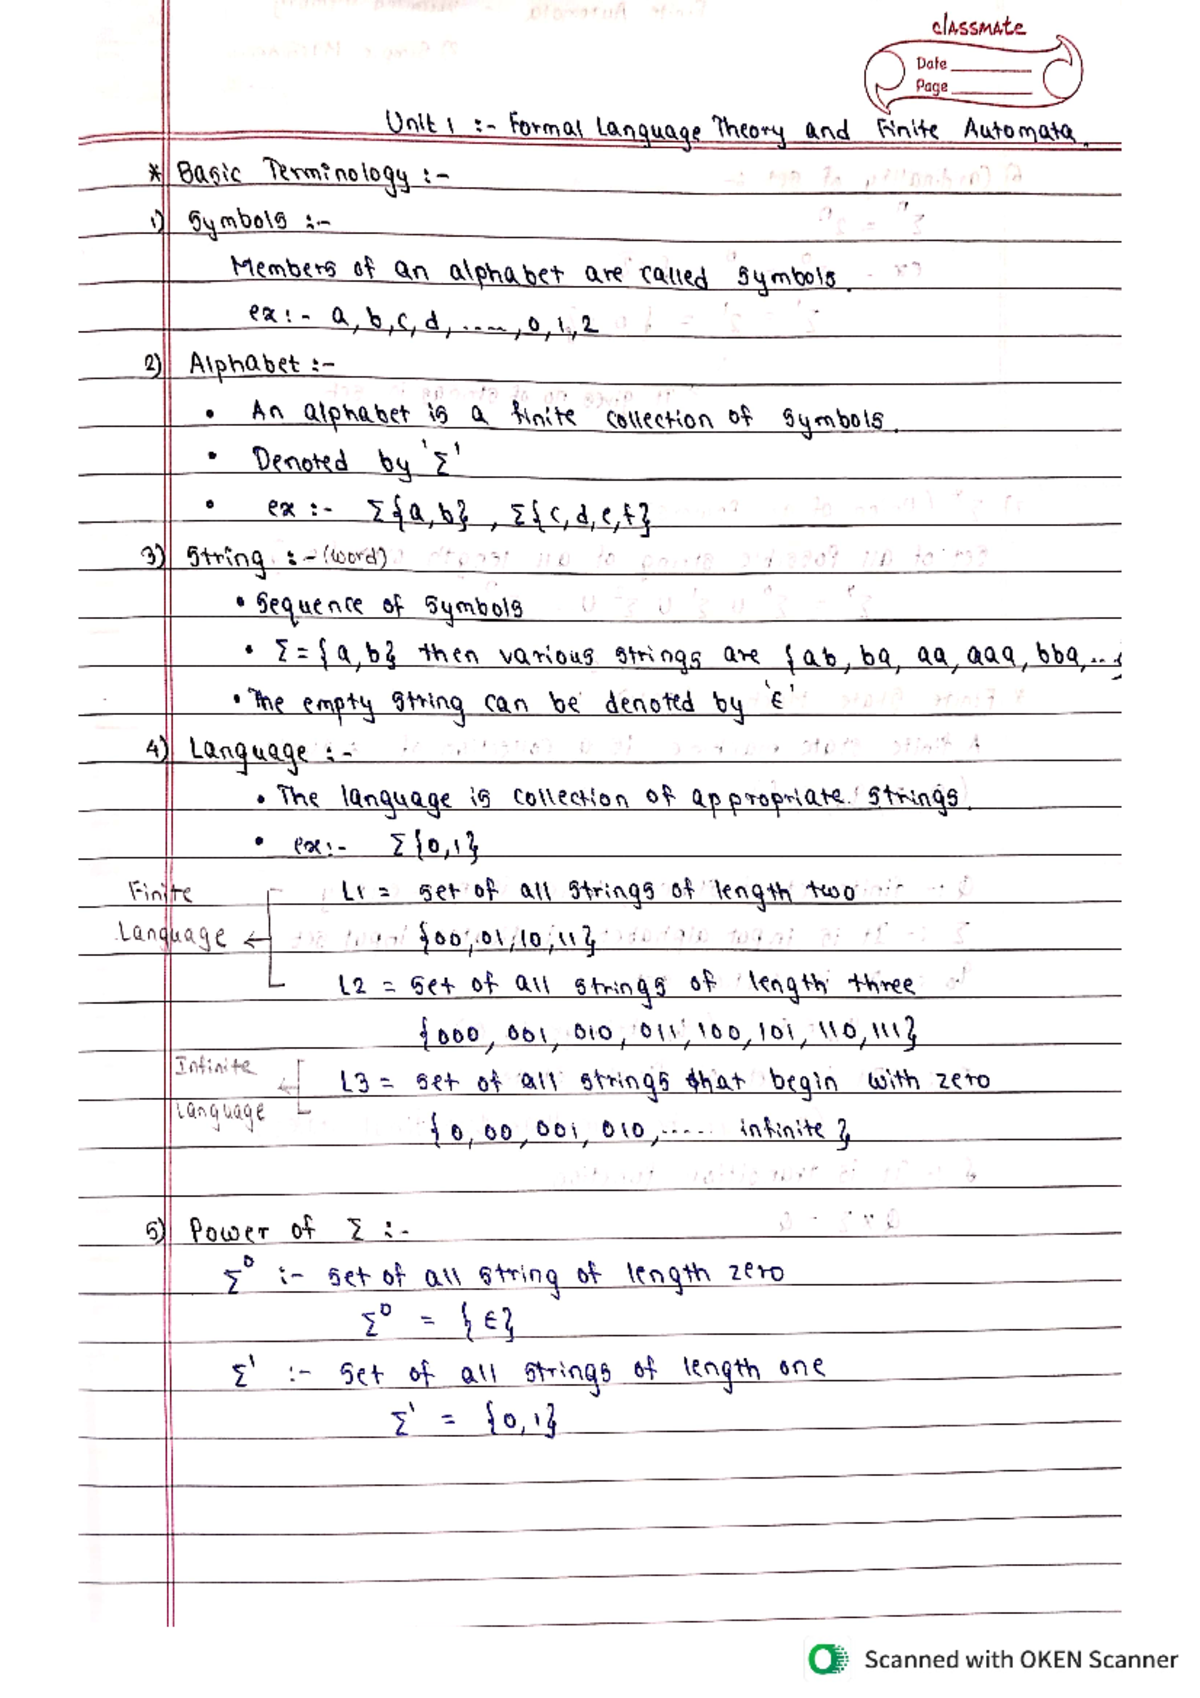 classmate
Date
Page
Unit 1 :- Formal Language Theory and Finite Automata.
* Basic Terminology :-
1) Symbols :-
Members of an alphabet are called symbols.
ex:- a, b, c, d, ....., 0, 1, 2
2) Alphabet :-
• An alphabet is a finite collection of symbols.
• Denoted by 'Σ'
• ex :- Σ{a, b} , Σ{c, d, e, f}
3) String :- (word)
• Sequence of symbols
• Σ = {a, b} then various strings are {ab, ba, aa, aaa, bba, ...}
• The empty string can be denoted by 'ϵ'
4) Language :-
• The language is collection of appropriate strings.
• ex:- Σ{0,1}
Finite Language ←
L1 = set of all strings of length two
{00, 01, 10, 11}
L2 = set of all strings of length three
{000, 001, 010, 011, 100, 101, 110, 111}
Infinite Language ←
L3 = set of all strings that begin with zero
{0, 00, 001, 010, ..... infinite}
5) Power of Σ :-
Σ⁰ :- set of all string of length zero
Σ⁰ = {ϵ}
Σ¹ :- set of all strings of length one
Σ¹ = {0, 1}
Scanned with OKEN Scanner